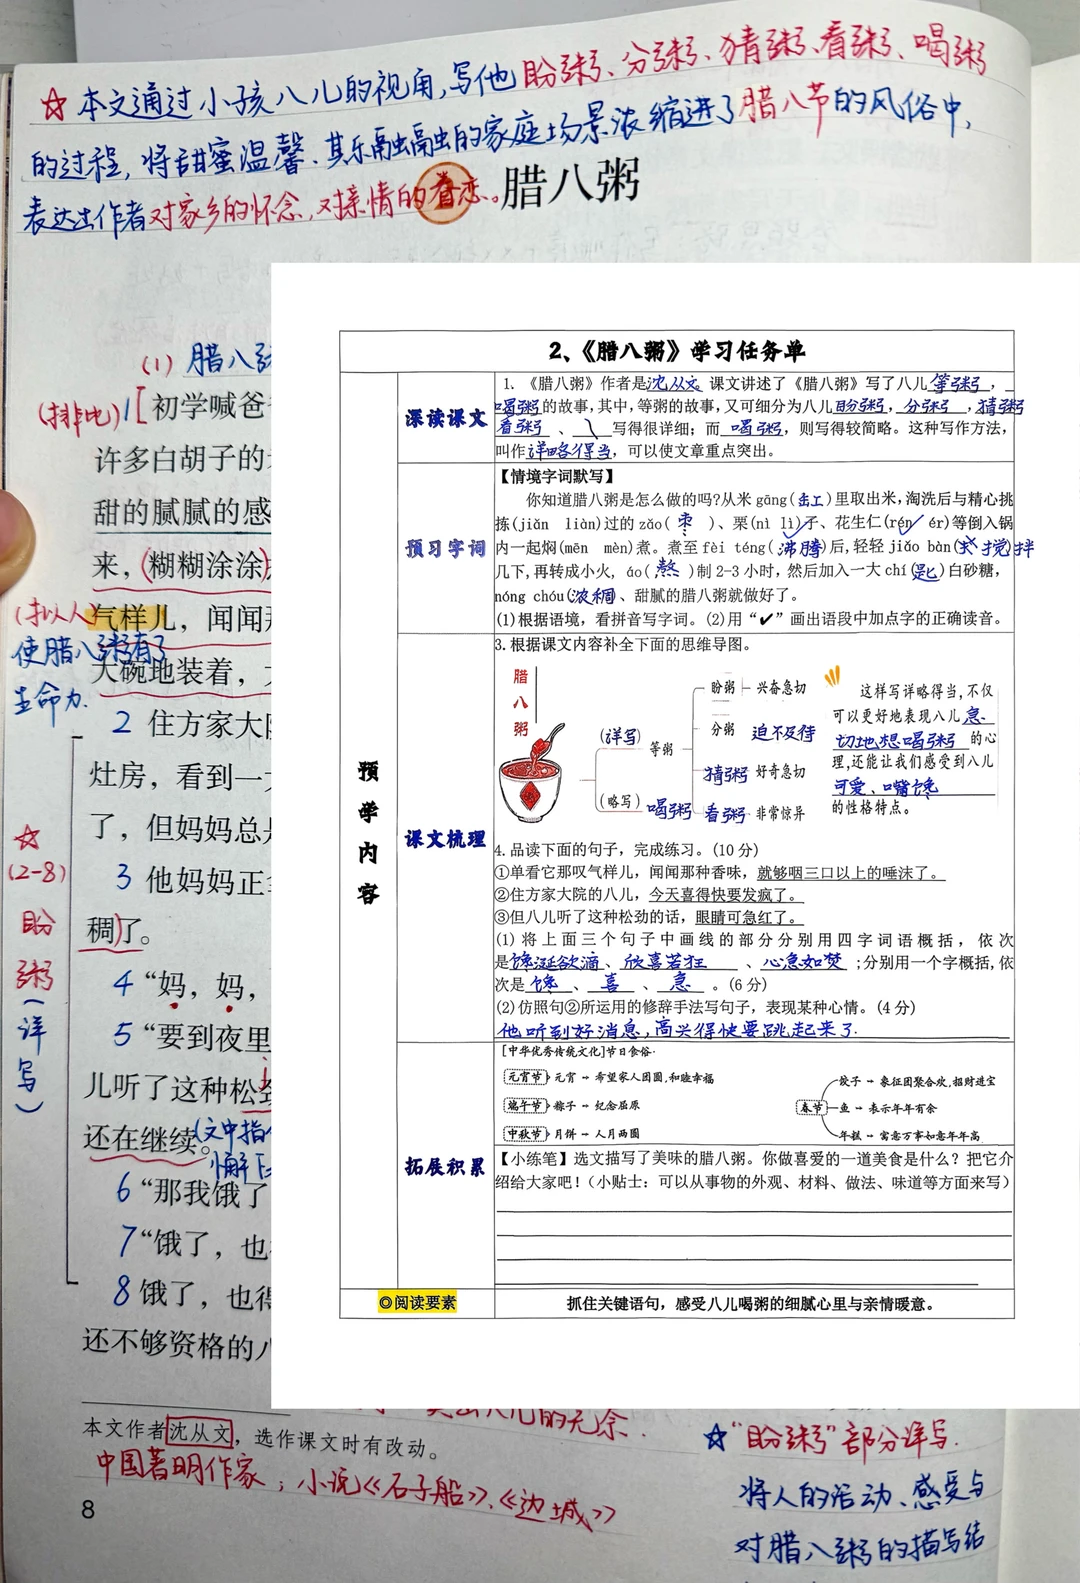 ☆本文通过小孩八儿的视角,写他盼粥、分粥、猜粥、看粥、喝粥
的过程,将甜蜜温馨、其乐融融的家庭场景浓缩进了腊八节的风俗中,
表达出作者对家乡的怀念,对亲情的眷恋。
腊八粥
(1) 腊八粥
(排比)1[初学喊爸
许多白胡子的
甜的腻腻的感
来,(糊糊涂涂)
(拟人)气样儿,闻闻
使腊八粥有了
生命力.
大碗地装着,
2 住方家大
灶房,看到一
了,但妈妈总
3 他妈妈正
稠)了。
☆
(2-8)
盼
粥
(详
写)
4 “妈,妈,
5 “要到夜里
儿听了这种松
还在继续。(文中指
6 “那我饿了
7 “饿了,也
8 饿了,也得
还不够资格的八
本文作者沈从文,选作课文时有改动。
中国著明作家;小说《石子船》、《边城》
8
☆“盼粥”部分详写.
将人的活动、感受与
对腊八粥的描写结
2、《腊八粥》学习任务单
深读课文
1. 《腊八粥》作者是沈从文 课文讲述了《腊八粥》写了八儿等粥,
喝粥的故事,其中,等粥的故事,又可细分为八儿盼粥,分粥,猜粥
看粥、 写得很详细;而 喝粥,则写得较简略。这种写作方法,
叫作详略得当,可以使文章重点突出。
预习字词
【情境字词默写】
你知道腊八粥是怎么做的吗?从米 gāng(缸)里取出米,淘洗后与精心挑
拣(jiǎn liàn)过的 zǎo( 枣 )、栗(nì lì✓)子、花生仁(rén✓ ér)等倒入锅
内一起焖(mēn mèn)煮。煮至 fèi téng(沸腾)后,轻轻 jiǎo bàn(搅)拌
几下,再转成小火, áo(熬)制 2-3 小时,然后加入一大 chí(匙)白砂糖,
nóng chóu(浓稠、甜腻的腊八粥就做好了。
(1)根据语境,看拼音写字词。(2)用“✔”画出语段中加点字的正确读音。
预学内容
课文梳理
3. 根据课文内容补全下面的思维导图。
腊八粥
(详写)
等粥
盼粥 兴奋急切
分粥 迫不及待
猜粥 好奇急切
看粥 非常惊异
(略写) 喝粥
这样写详略得当,不仅
可以更好地表现八儿急
切地想喝粥 的心
理,还能让我们感受到八儿
可爱、嘴馋
的性格特点。
4. 品读下面的句子,完成练习。(10 分)
①单看它那叹气样儿,闻闻那种香味,就够咽三口以上的唾沫了。
②住方家大院的八儿,今天喜得快要发疯了。
③但八儿听了这种松劲的话,眼睛可急红了。
(1) 将上面三个句子中画线的部分分别用四字词语概括,依次
是馋涎欲滴、欣喜若狂 、心急如焚 ;分别用一个字概括,依
次是 馋 、 喜 、 急 。(6 分)
(2)仿照句②所运用的修辞手法写句子,表现某种心情。(4 分)
他听到好消息,高兴得快要跳起来了.
拓展积累
[中华优秀传统文化]节日食俗·
元宵节 元宵→希望家人团圆,和睦幸福
端午节 粽子→纪念屈原
中秋节 月饼→人月两圆
春节
饺子→象征团聚合欢,招财进宝
鱼→表示年年有余
年糕→寓意万事如意年年高
【小练笔】选文描写了美味的腊八粥。你做喜爱的一道美食是什么?把它介
绍给大家吧!(小贴士:可以从事物的外观、材料、做法、味道等方面来写)
◎阅读要素
抓住关键语句,感受八儿喝粥的细腻心里与亲情暖意。